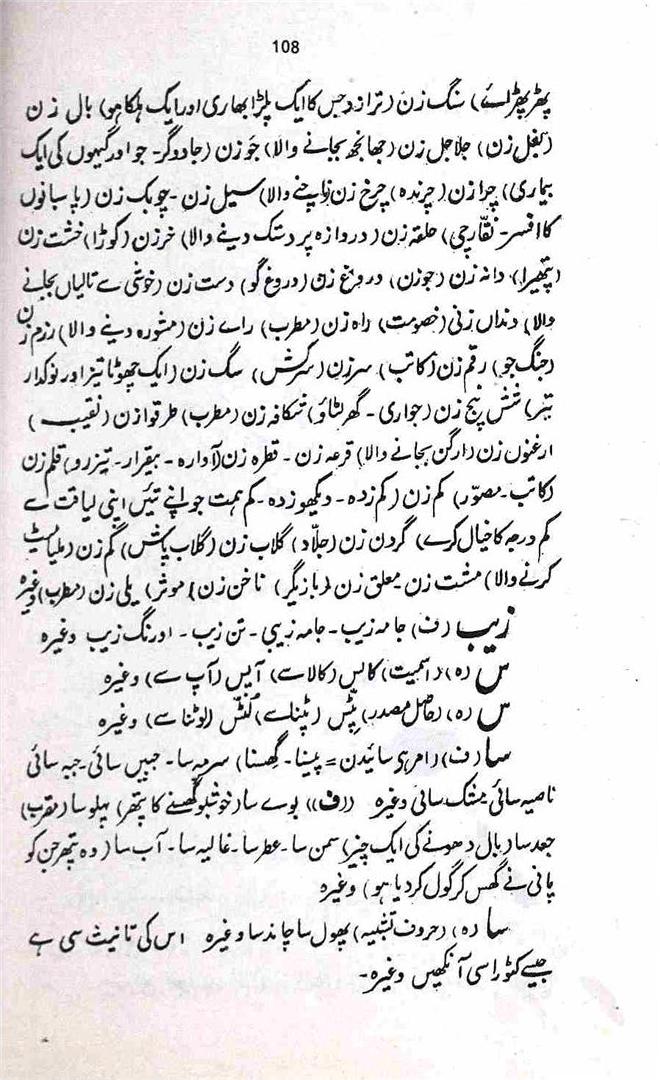 108
پھڑپھڑائے) سنگ زن (ترازو جس کا ایک پلڑا بھاری اور ایک ہلکا ہو) بال زن
(بغل زن) جلاجل زن (جھانجھ بجانے والا) جَو زن (جادوگر۔ جو اور گیہوں کی ایک
بیماری) چرا زن (چرندہ) چرخ زن (ناچنے والا) سیل زن۔ چوبک زن (پاسبانوں
کا افسر۔ نقارچی) حلقہ زن (دروازہ پر دستک دینے والا) خرزن (کوڑا) خشت زن
(پتھیرا) دانہ زن (جوزن) دروغ زن (دروغ گو) دست زن (خوشی سے تالیاں بجانے
والا) دنداں زنی (خصومت) راہ زن (مطرب) رائے زن (مشورہ دینے والا) رزم زن
(جنگ جو) رقم زن (کاتب) سرزن (سرکش) سگ زن (ایک چھوٹا تیز اور نوکدار
تیر) شش پنج زن (جواری۔ گھر لٹاؤ) شکافہ زن (مطرب) طرقوا زن (نقیب)
ارغنوں زن (ارگن بجانے والا) قرعہ زن۔ قطرہ زن (آوارہ۔ بیقرار۔ تیزرو) قلم زن
(کاتب۔ مصوّر) کم زن (کم زدہ۔ دیکھو زدہ۔ کم ہمت جو اپنے تئیں اپنی لیاقت سے
کم درجہ کا خیال کرے) گردن زن (جلّاد) گلاب زن (گلاب پاش) گم زن (ملیامیٹ
کرنے والا) مشت زن۔ معلق زن (بازیگر) ناخن زن (موثر) یلی زن (مطرب) وغیرہ
زیب (ف) جامہ زیب۔ جامہ زیبی۔ تن زیب۔ اورنگ زیب وغیرہ
س (ہ) (اسمیت) کالس (کالا سے) آپس (آپ سے) وغیرہ
س (ہ) (حاصل مصدر) پٹس (پٹنا سے) لُٹس (لوٹنا سے) وغیرہ
سا (ف) (امر ہے سائیدن = پیسنا۔ گھسنا) سرمہ سا۔ جبیں سائی۔ جبہ سائی
ناصیہ سائی مشک سائی وغیرہ (ف) بوے سا (خوشبو گھسنے کا پتھر) پہلو سا (مقرب)
جعد سا (بال دھونے کی ایک چیز) سمن سا۔ عطر سا۔ غالیہ سا۔ آب سا (وہ پتھر جن کو
پانی نے گھس کر گول کر دیا ہو) وغیرہ
سا (ہ) (حروف تشبیہ) پھول سا چاند سا وغیرہ اس کی تانیث سی ہے
جیسے کٹورا سی آنکھیں وغیرہ۔